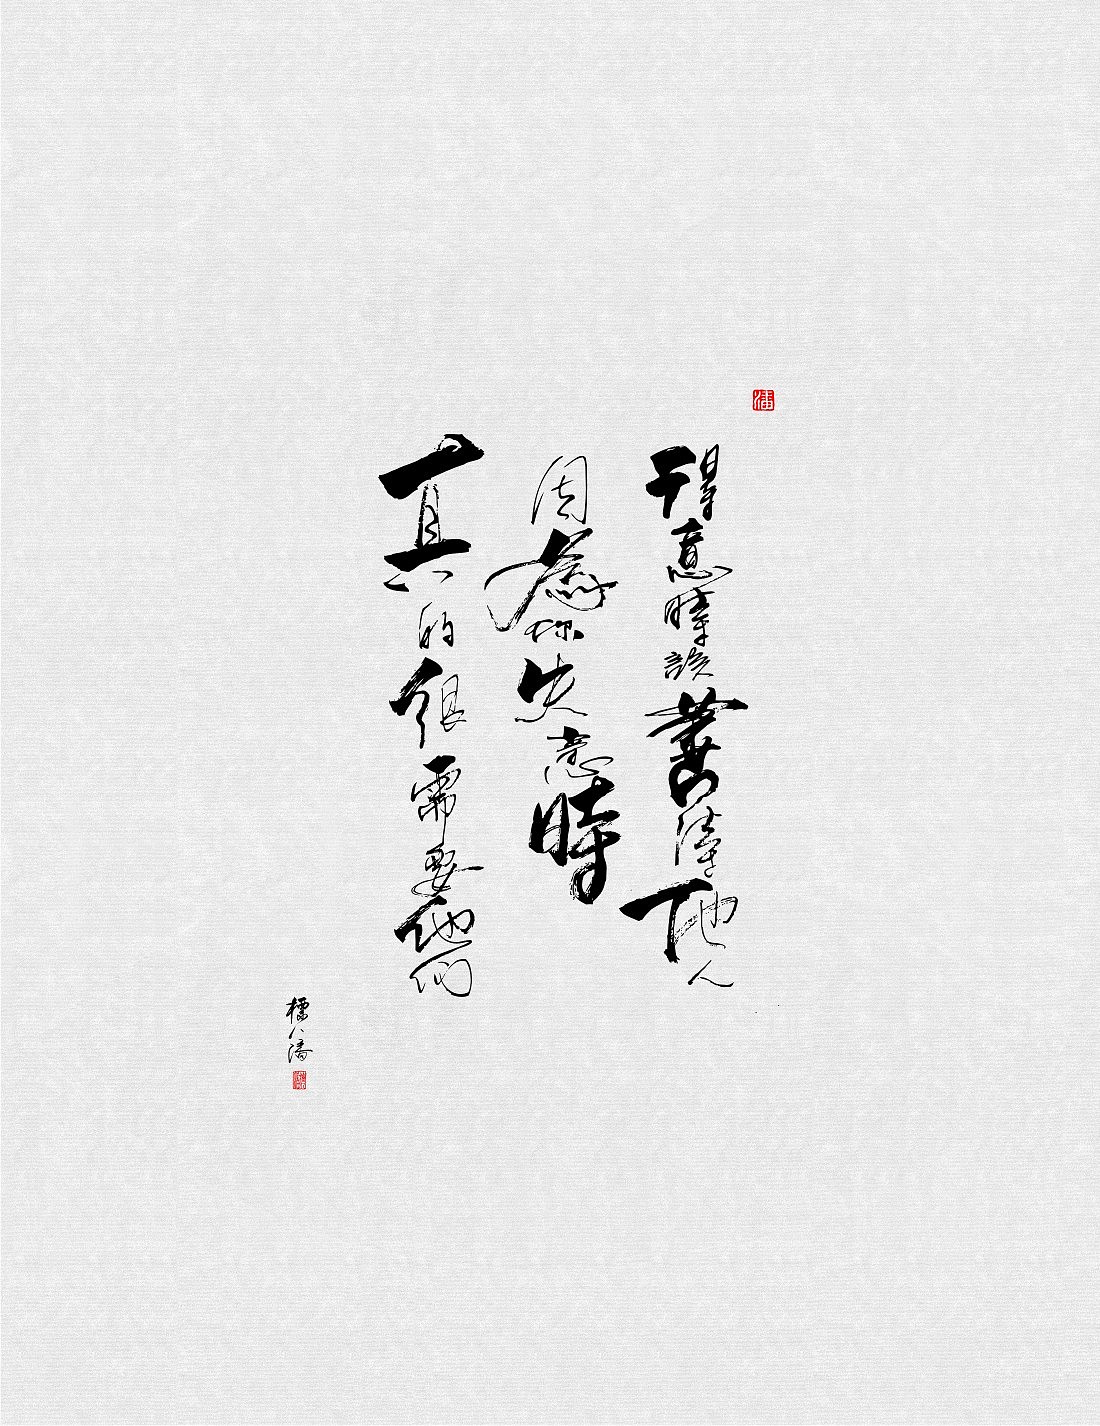 得意時請善待他人
因為你失意時
真的很需要他們
標人潘
潘